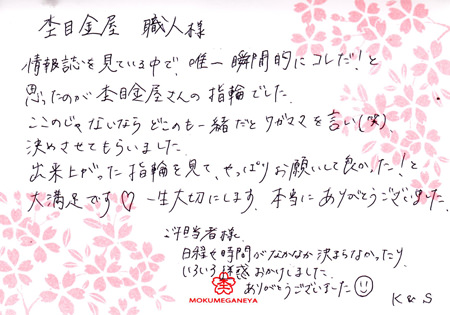 杢目金屋 職人様
情報誌を見ている中で、唯一瞬間的にコレだ!と
思ったのが杢目金屋さんの指輪でした。
ここのじゃないなら どこのも一緒だとワガママを言い(笑)、
決めさせてもらいました。
出来上がった指輪を見て、やっぱりお願いして良かった!と
大満足です♡ 一生大切にします。本当にありがとうございました。
ご担当者様、
日程や時間がなかなか決まらなかったり、
いろいろ迷惑おかけしました。
ありがとうございました☺
MOKUMEGANEYA
K & S